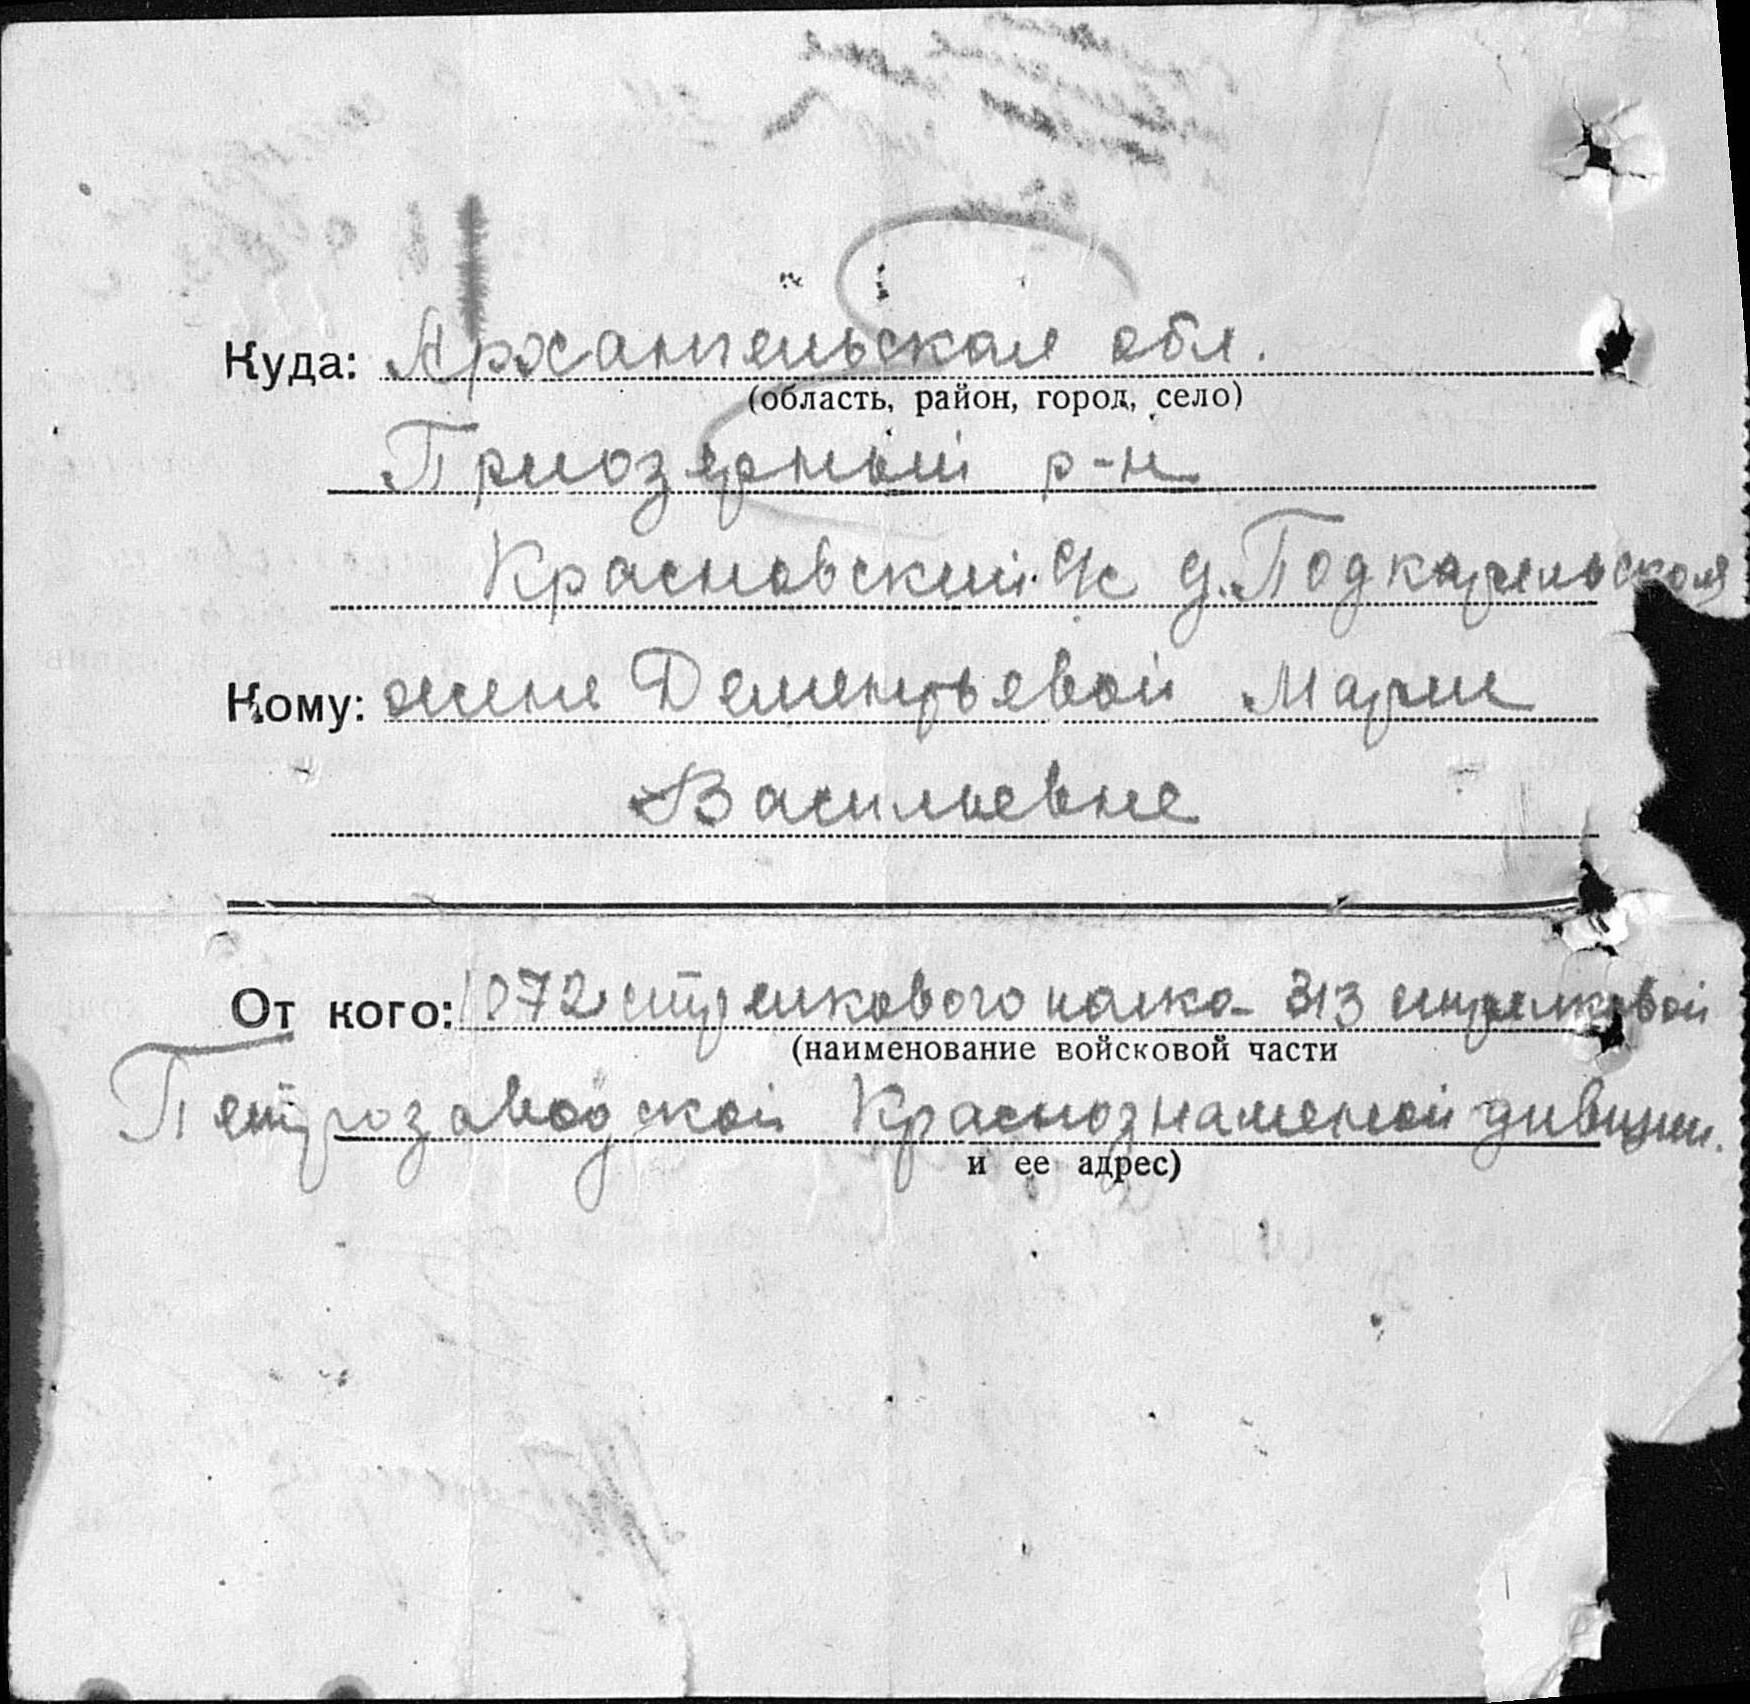 Куда: Архангельская обл.
(область, район, город, село)
Приозерный р-н
Красновский с/с д. Подкарельская
Кому: жене Дементьевой Марие
Васильевне
От кого: 1072 стрелкового полка - 313 стрелковой
(наименование войсковой части
Петрозаводской Краснознаменой дивизии.
и ее адрес)